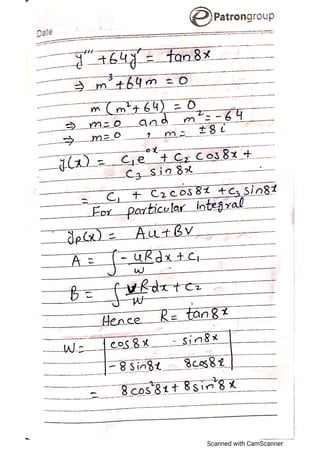 Patrongroup
Date
y''' + 64y' = tan8x
⇒ m³ + 64m = 0
m (m² + 64) = 0
⇒ m=0 and m² = -64
⇒ m=0 , m = ±8i
y(x) = C₁e^(0x) + C₂ Cos8x +
C₃ sin 8x
= C₁ + C₂cos8x + C₃ Sin8x
For particular Integral
yp(x) = Au + Bv
A = ∫ -uR/w dx + C₁
B = ∫ vR/W dx + C₂
Hence R = tan8x
W = | cos8x sin8x
-8 sin8x 8cos8x |
= 8cos²8x + 8sin²8x
Scanned with CamScanner